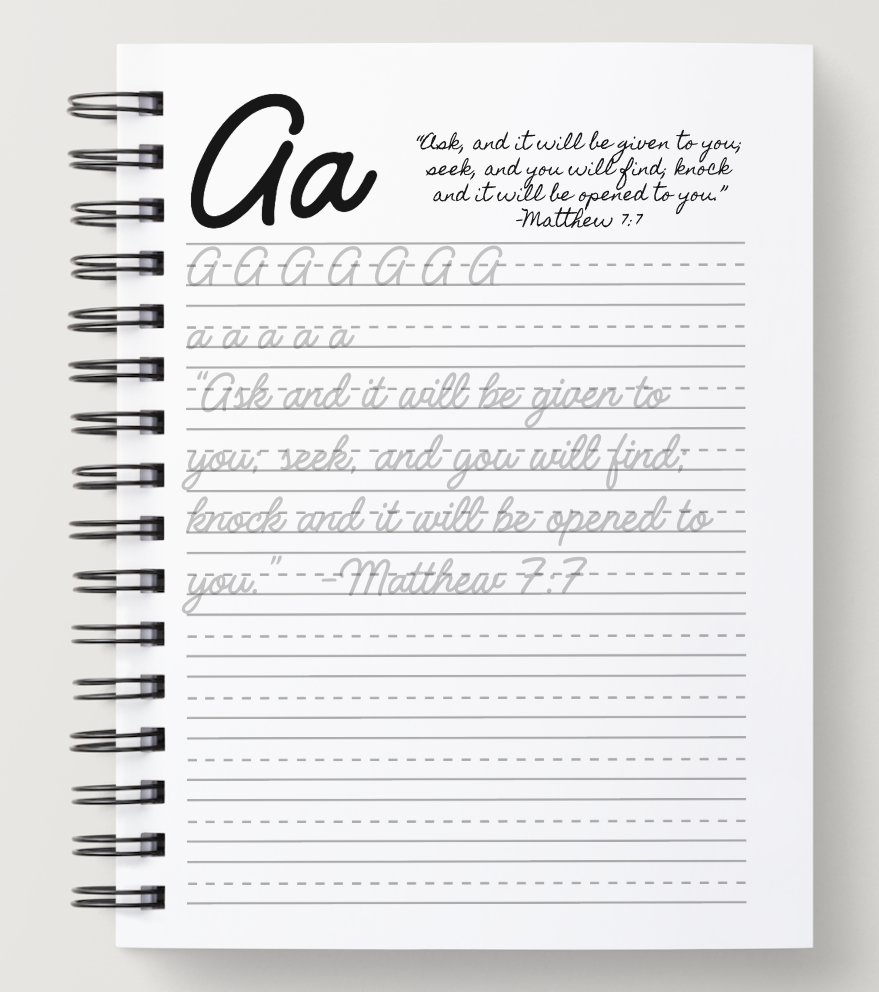 Aa
“Ask, and it will be given to you;
seek, and you will find; knock
and it will be opened to you.”
-Matthew 7:7
A A A A A A A
a a a a a
“Ask and it will be given to
you; seek, and you will find;
knock and it will be opened to
you.” -Matthew 7:7